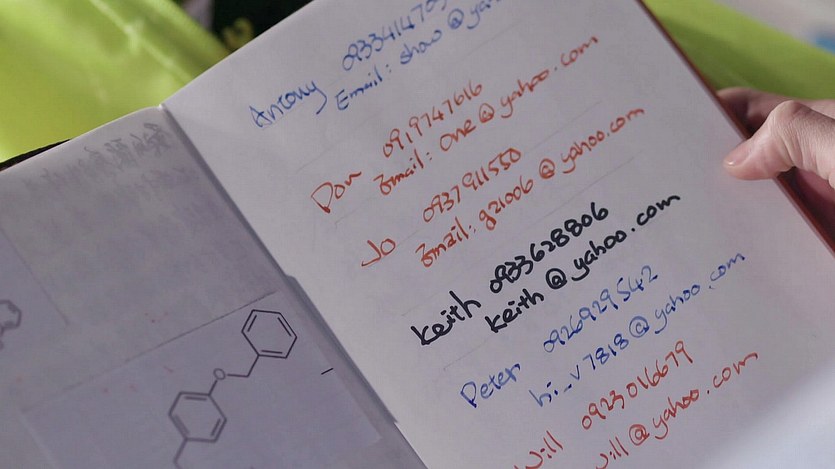 Antony 0933414705
Email: show@ya
Don 0919747616
Email: One@yahoo.com
Jo 0937911550
Email: g21006@yahoo.com
keith 0933628806
keith@yahoo.com
Peter 0926929542
hi_v7818@yahoo.com
Will 0923016679
will@yahoo.com